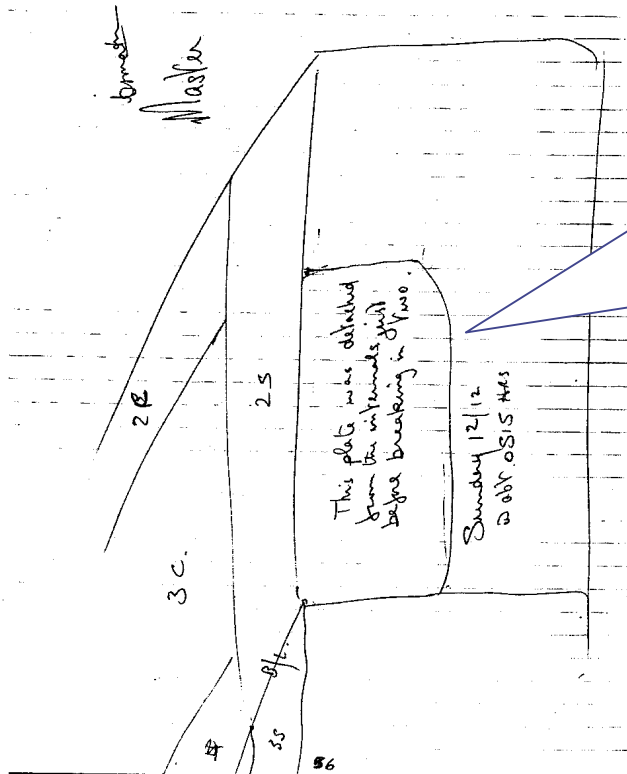 Master
2S
3 C.
This plate was detached
from the internals just
before breaking in two.
Sunday 12/12
@ abt. 0515 HRS
B/L.
56